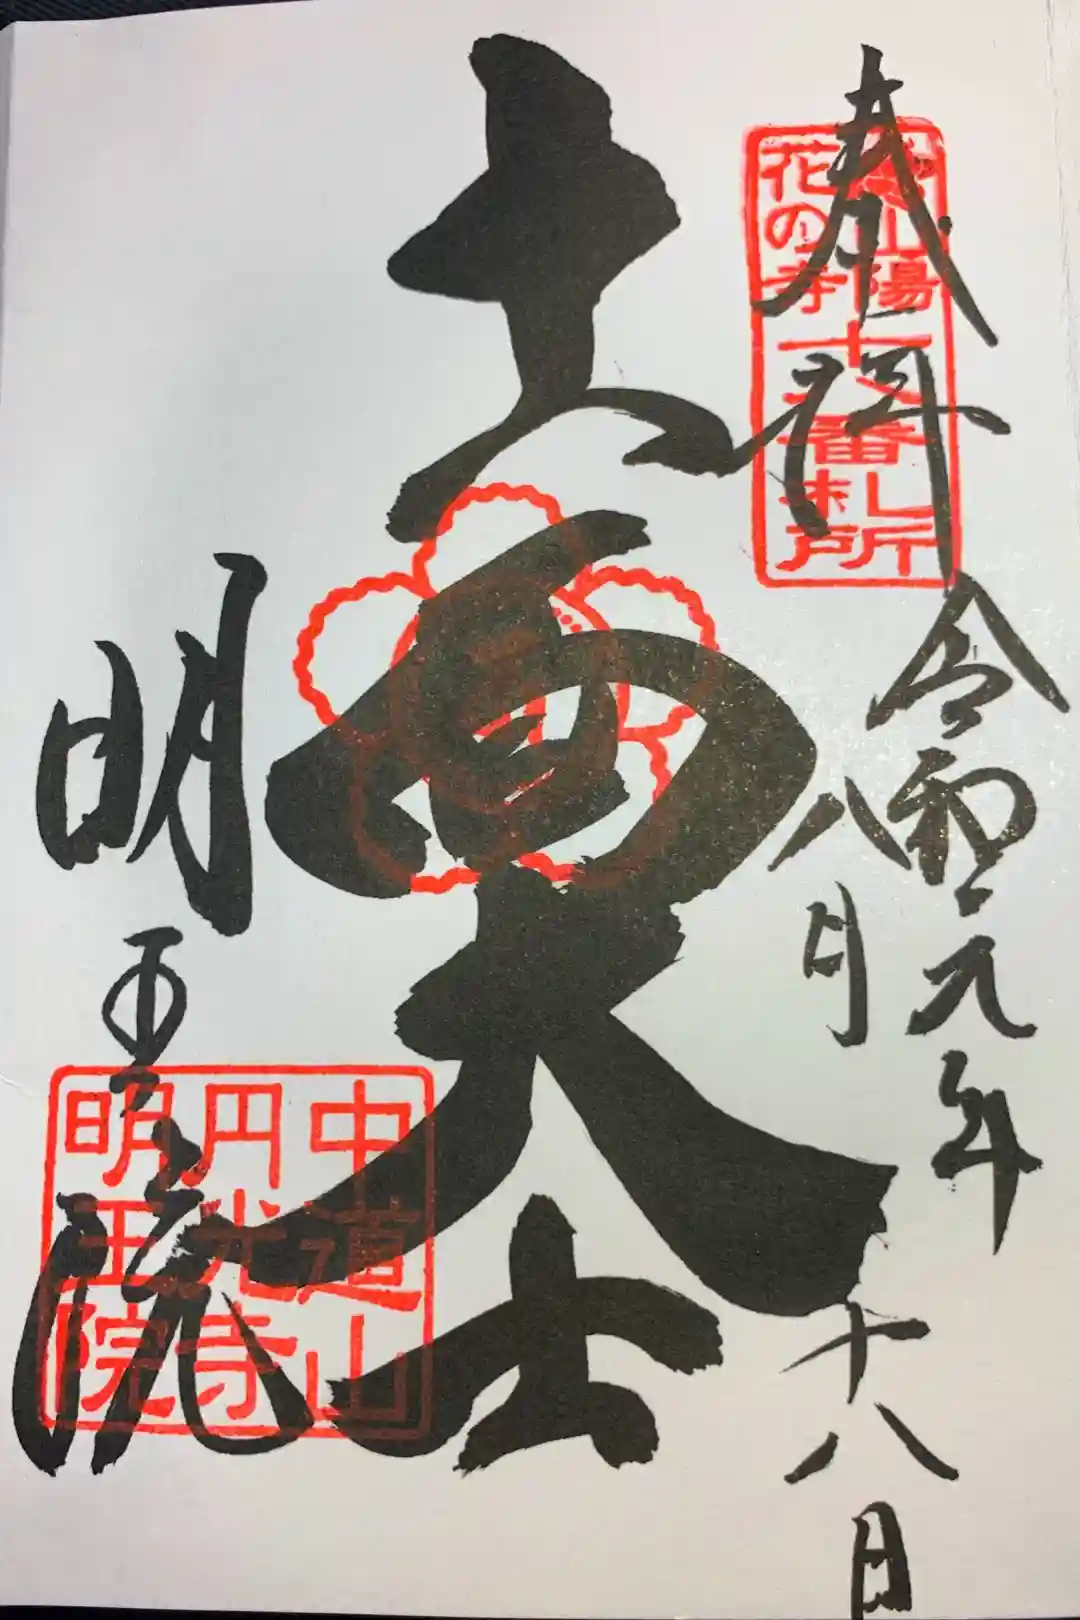 奉拝
山陽
花の寺
十八番
札所
令和元年
八月十八日
十一面大士
明王院
中道山
円光寺
明王院